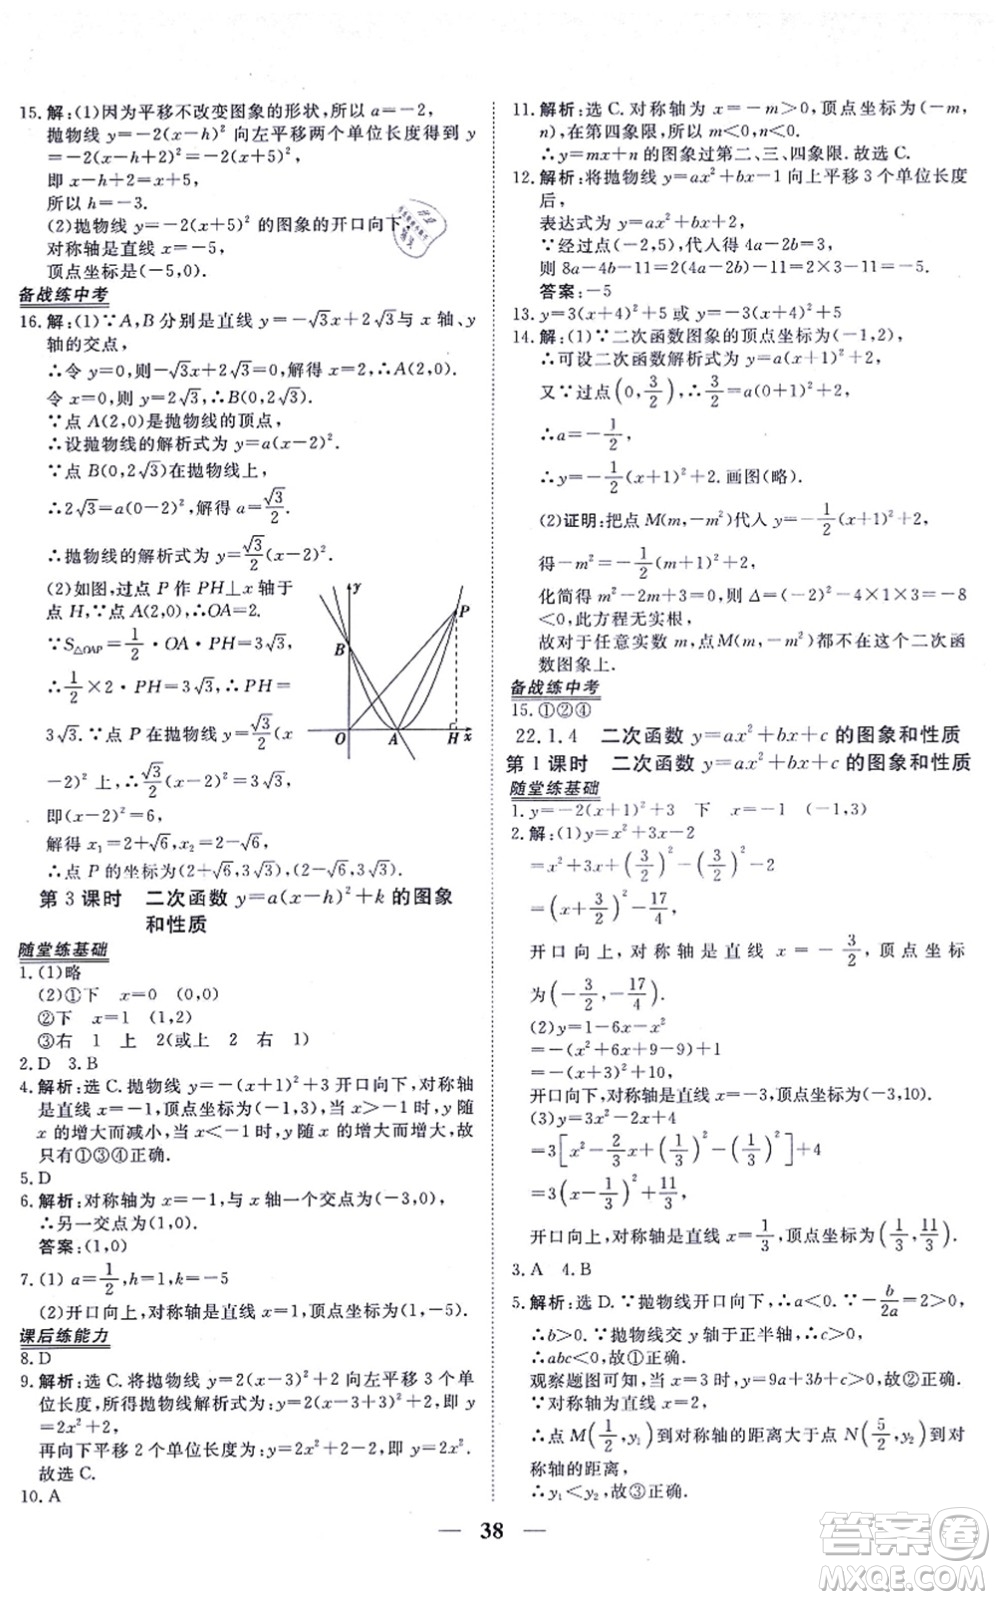 15. 解:(1)因为平移不改变图象的形状,所以 a=-2,
抛物线 y=-2(x-h)² 向左平移两个单位长度得 y
=-2(x-h+2)²=-2(x+5)²,
即-h+2=5,
所以 h=-3.
(2)抛物线 y=-2(x+5)² 的图象的开口向下,
对称轴是直线 x=-5,
顶点坐标是(-5,0).
备战练中考
16. 解:(1)∵A,B 分别是直线 y=-√3x+2√3与 x 轴、y
轴的交点,
∴令 y=0,则-√3x+2√3=0,解得 x=2.∴A(2,0).
令 x=0,则 y=2√3,∴B(0,2√3).
∵点 A(2,0)是抛物线的顶点,
∴设抛物线的解析式为 y=a(x-2)².
∵点 B(0,2√3)在抛物线上,
∴2√3=a(0-2)²,解得 a=√3/2.
∴抛物线的解析式为 y=√3/2(x-2)².
(2)如图,过点 P 作 PH⊥x 轴于
点 H,∵点 A(2,0),∴OA=2.
∵S△OAP=1/2·OA·PH=3√3,
∴1/2×2·PH=3√3,∴PH=
3√3.∵点 P 在抛物线 y=√3/2(x
-2)² 上,∴√3/2(x-2)²=3√3,
即(x-2)²=6,
解得 x₁=2+√6,x₂=2-√6,
∴点 P 的坐标为(2+√6,3√3),(2-√6,3√3).
y
P
B
O
A
H
x
第 3 课时 二次函数 y=a(x-h)²+k 的图象
和性质
随堂练基础
1. (1)略
(2)①下 x=0 (0,0)
②下 x=1 (1,2)
③右 1 上 2(或上 2 右 1)
2. D 3. B
4. 解析:选 C. 抛物线 y=-(x+1)²+3 开口向下,对称轴
是直线 x=-1,顶点坐标是(-1,3),当 x>-1 时,y 随
x 的增大而减小,当 x<-1 时,y 随 x 的增大而增大,故
只有①③④正确.
5. D
6. 解析:∵对称轴为 x=-1,与 x 轴一个交点为(-3,0),
∴另一交点为(1,0).
答案:(1,0)
7. (1) a=1/2,h=1,k=-5
(2)开口向上,对称轴是直线 x=1,顶点坐标为(1,-5).
课后练能力
8. D
9. 解析:选 C. 将抛物线 y=2(x-3)²+2 向左平移 3 个单
位长度,所得抛物线解析式为 y=2(x-3+3)²+2,即 y
=2x²+2,
再向下平移 2 个单位长度为:y=2x²+2-2,即 y=2x².
故选 C.
10. A
11. 解析:选 C. 对称轴为 x=-m>0,顶点坐标为(-m,
n),在第四象限,所以 m<0,n<0.
∴y=mx+n 的图象过第二、三、四象限.故选 C.
12. 解析:将抛物线 y=ax²+bx-1 向上平移 3 个单位长度
后,
表达式为 y=ax²+bx+2,
∵经过点(-2,5),代入得 4a-2b=3,
则 8a-4b-11=2(4a-2b)-11=2×3-11=-5.
答案:-5
13. y=3(x+4)²+5 或 y=3(x-4)²+5
14. 解:(1)∵二次函数图象的顶点坐标为(-1,2),
∴可设二次函数解析式为 y=a(x+1)²+2,
又∵过点(0,3/2),∴3/2=a(0+1)²+2,
∴a=-1/2,
∴y=-1/2(x+1)²+2.画图(略).
(2)证明:把点 M(m,-m²)代入 y=-1/2(x+1)²+2,
得-m²=-1/2(m+1)²+2,
化简得 m²-2m+3=0,则 Δ=(-2)²-4×1×3=-8
<0,此方程无实根,
故对于任意实数 m,点M(m,-m²)都不在这个二次函
数图象上.
备战练中考
15. ①②④
22.1.4 二次函数 y=ax²+bx+c 的图象和性质
第 1 课时 二次函数 y=ax²+bx+c 的图象和性质
随堂练基础
1. y=-2(x+1)²+3 下 x=-1 (-1,3)
2. 解:(1)y=x²+3x-2
=x²+3x+(3/2)²-(3/2)²-2
=(x+3/2)²-17/4,
开口向上,对称轴是直线 x=-3/2,顶点坐标
为(-3/2,-17/4).
(2)y=1-6x-x²
=-(x²+6x+9-9)+1
=-(x+3)²+10,
开口向下,对称轴是直线 x=-3,顶点坐标为(-3,10).
(3)y=3x²-2x+4
=3[x²-2/3x+(1/3)²-(1/3)²]+4
=3(x-1/3)²+11/3,
开口向上,对称轴是直线 x=1/3,顶点坐标为(1/3,11/3).
3. A 4. B
5. 解析:选 D. ∵抛物线开口向下,∴a<0.∵-b/2a=2>0,
∴b>0.∵抛物线交 y 轴于正半轴,∴c>0,
∴abc<0,故①正确.
观察题图可知,当 x=3 时,y=9a+3b+c>0,故②正确.
∵对称轴为直线 x=2,
∴点 M(1/2,y₁)到对称轴的距离大于点 N(5/2,y₂)到对
称轴的距离,
∴y₁<y₂,故③正确.
— 38 —
答案圈
MXQE.COM